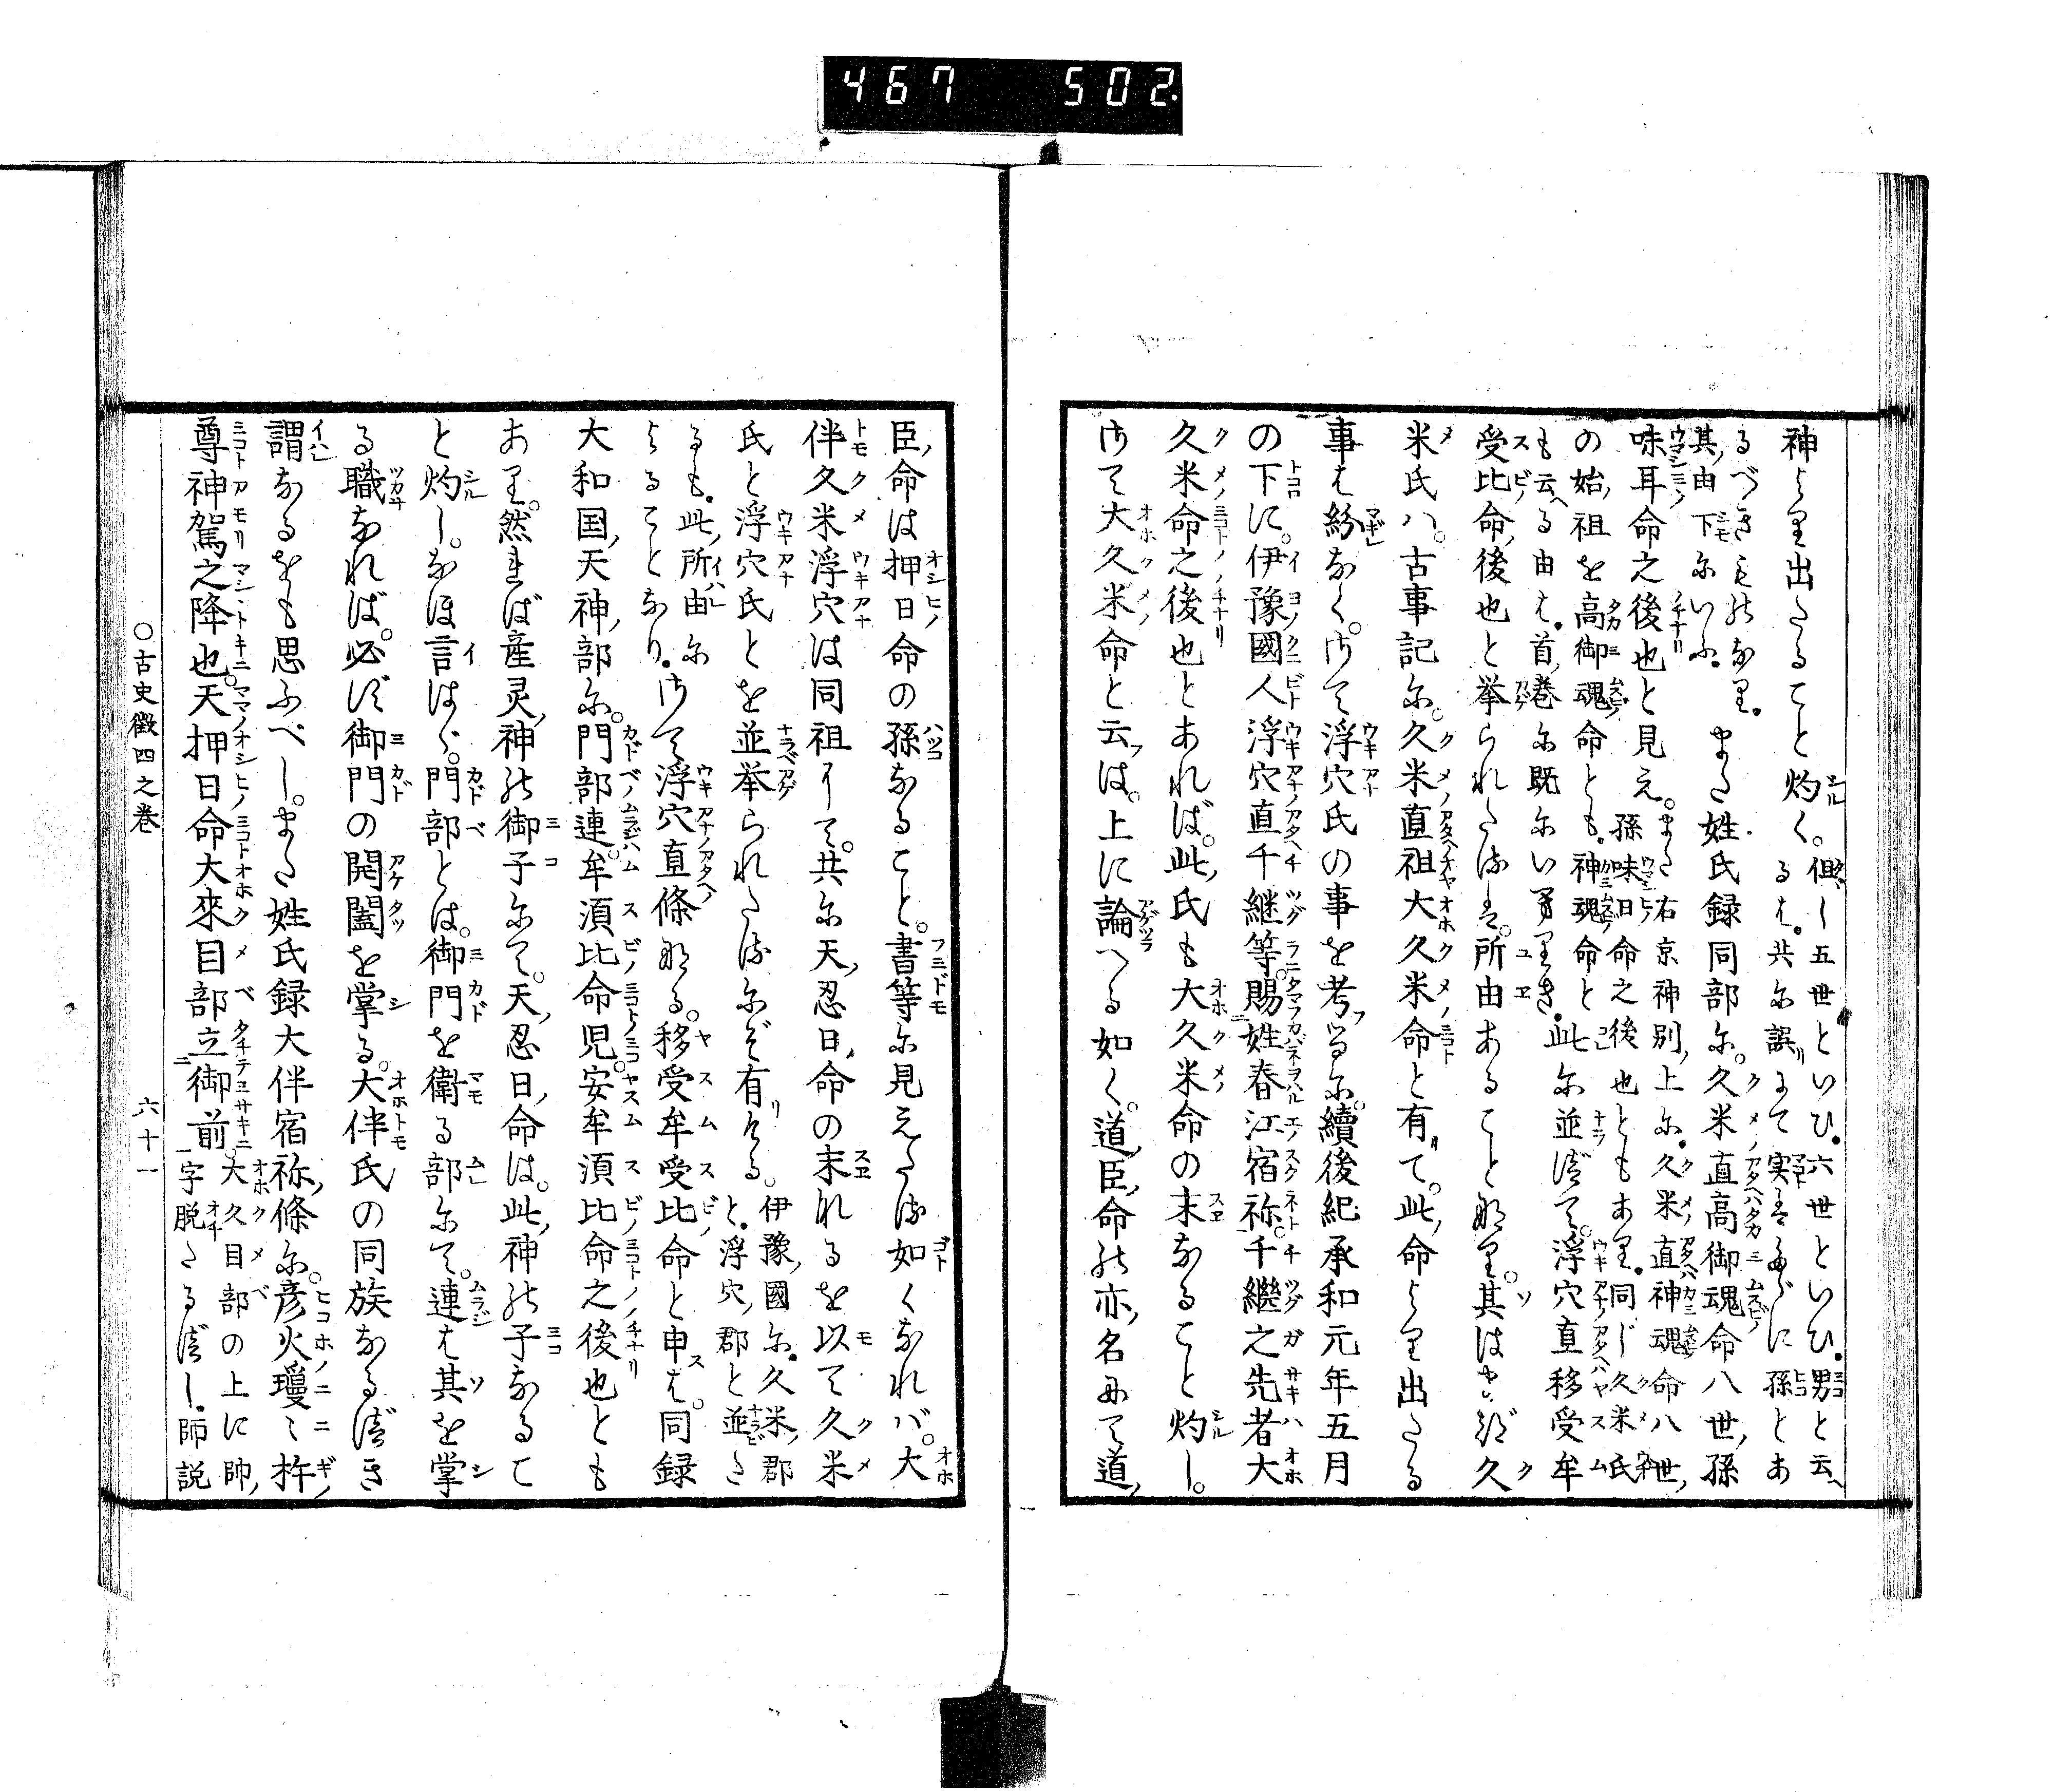 467 502.
神より出たること灼く。但し五世といひ。六世といひ。男と云へ
るは。共に誤りにて実はたゞに孫とあ
るべきものなり。また姓氏録同部に。久米直高御魂命八世孫
其由下にいふ。
味耳命之後也と見え。また右京神別上に。久米直神魂命八世
孫味日命之後也ともあり。同じ久米氏
の始祖を高御魂命とも。神魂命と此に並べて。浮穴直移受牟
も云へる由は。首巻に既にいへりき。
受比命後也と挙られたるは。所由あることなり。其はまづ久
米氏ハ。古事記に。久米直祖大久米命と有て。此命より出たる
事は紛なく。さて浮穴氏の事を考るに。續後紀承和元年五月
の下に。伊豫國人浮穴直千継等賜姓春江宿祢。千繼之先者大
久米命之後也とあれば。此氏も大久米命の末なること灼し。
さて大久米命と云は。上に論へる如く。道臣命の亦名にて道
臣命は押日命の孫なること。書等に見えたる如くなれバ。大
伴久米浮穴は同祖にて。共に天忍日命の末なるを以て久米
氏と浮穴氏とを並挙られたるにぞ有ける。伊豫國に。久米郡
と。浮穴郡と並た
るも。此所由に
よることなり。さて浮穴直條なる。移受牟受比命と申は。同録
大和国天神部に。門部連。牟須比命児。安牟須比命之後也とも
あり。然れば産灵神の御子にて。天忍日命は。此神の子なるこ
と灼し。なほ言はゞ。門部とは。御門を衛る部にて。連は其を掌
る職なれば。必ず御門の開闔を掌る。大伴氏の同族なるべき
謂なるをも思ふべし。また姓氏録大伴宿祢條に。彦火瓊々杵
尊神駕之降也。天押日命大來目部立御前。大久目部の上に帥
一字脱たるべし。師説
○古史徴四之巻 六十一